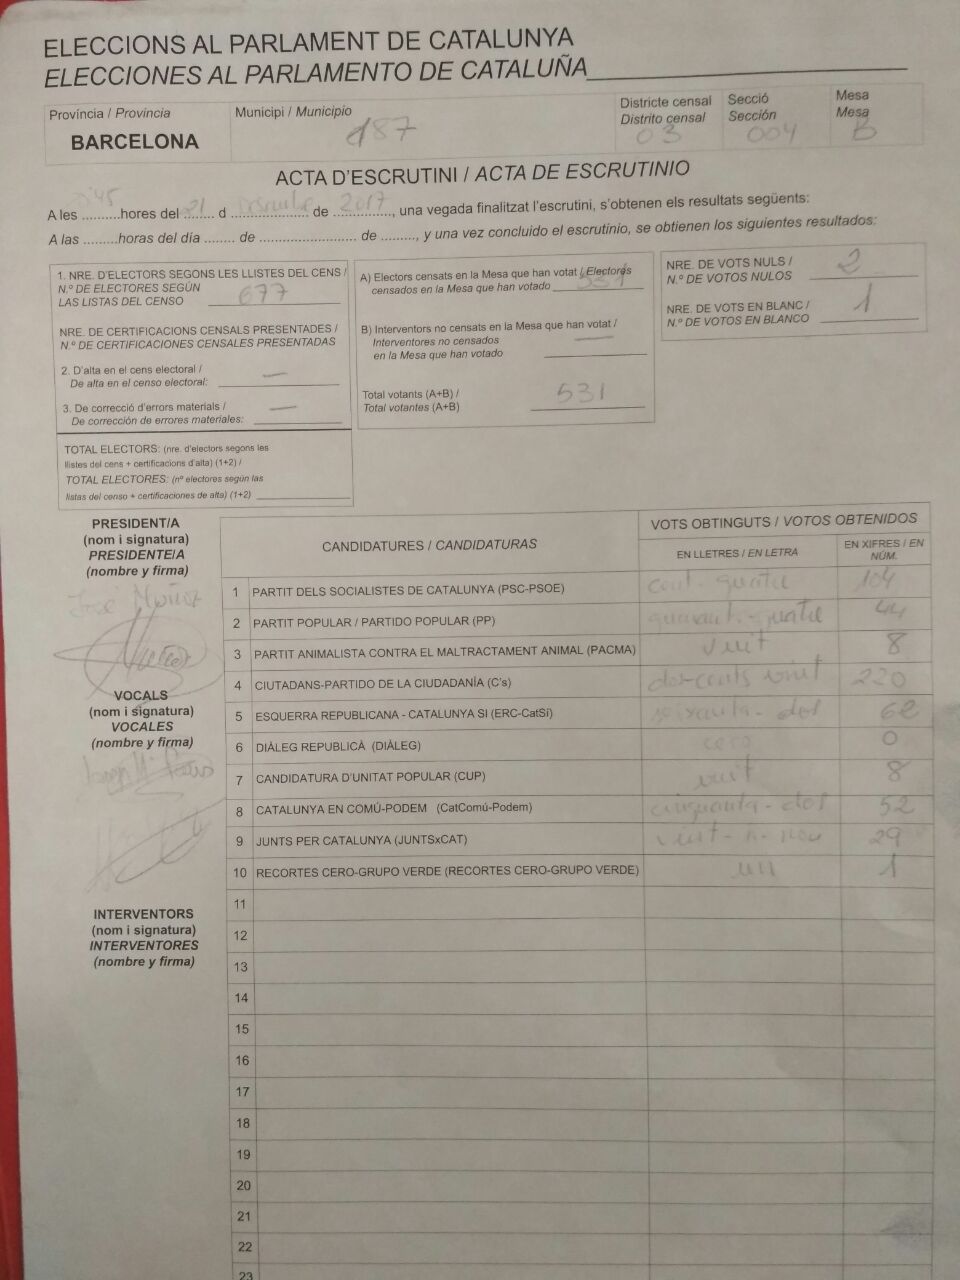 ELECCIONS AL PARLAMENT DE CATALUNYA
ELECCIONES AL PARLAMENTO DE CATALUÑA
Província / Provincia
BARCELONA
Municipi / Municipio
187
Districte censal
Distrito censal
03
Secció
Sección
004
Mesa
Mesa
B
ACTA D'ESCRUTINI / ACTA DE ESCRUTINIO
A les ..........hores del 21 d ...................... de 2017, una vegada finalitzat l'escrutini, s'obtenen els resultats següents:
A las .........horas del día ........ de ......................... de ........., y una vez concluido el escrutinio, se obtienen los siguientes resultados:
1. NRE. D'ELECTORS SEGONS LES LLISTES DEL CENS /
N.º DE ELECTORES SEGÚN
LAS LISTAS DEL CENSO 677
NRE. DE CERTIFICACIONS CENSALS PRESENTADES /
N.º DE CERTIFICACIONES CENSALES PRESENTADAS
2. D'alta en el cens electoral /
De alta en el censo electoral: —
3. De correcció d'errors materials /
De corrección de errores materiales: —
TOTAL ELECTORS: (nre. d'electors segons les
llistes del cens + certificacions d'alta) (1+2) /
TOTAL ELECTORES: (nº electores según las
listas del censo + certificaciones de alta) (1+2)
A) Electors censats en la Mesa que han votat / Electores
censados en la Mesa que han votado 531
B) Interventors no censats en la Mesa que han votat /
Interventores no censados
en la Mesa que han votado —
Total votants (A+B) /
Total votantes (A+B) 531
NRE. DE VOTS NULS /
N.º DE VOTOS NULOS 2
NRE. DE VOTS EN BLANC /
N.º DE VOTOS EN BLANCO 1
PRESIDENT/A
(nom i signatura)
PRESIDENTE/A
(nombre y firma)
José Muñoz
VOCALS
(nom i signatura)
VOCALES
(nombre y firma)
INTERVENTORS
(nom i signatura)
INTERVENTORES
(nombre y firma)
CANDIDATURES / CANDIDATURAS
VOTS OBTINGUTS / VOTOS OBTENIDOS
EN LLETRES / EN LETRA
EN XIFRES / EN NÚM.
1 PARTIT DELS SOCIALISTES DE CATALUNYA (PSC-PSOE) cent-quatre 104
2 PARTIT POPULAR / PARTIDO POPULAR (PP) quaranta-quatre 44
3 PARTIT ANIMALISTA CONTRA EL MALTRACTAMENT ANIMAL (PACMA) vuit 8
4 CIUTADANS-PARTIDO DE LA CIUDADANÍA (C's) dos-cents vint 220
5 ESQUERRA REPUBLICANA - CATALUNYA SI (ERC-CatSí) seixanta-dos 62
6 DIÀLEG REPUBLICÀ (DIÀLEG) cero 0
7 CANDIDATURA D'UNITAT POPULAR (CUP) vuit 8
8 CATALUNYA EN COMÚ-PODEM (CatComú-Podem) cinquanta-dos 52
9 JUNTS PER CATALUNYA (JUNTSxCAT) vint-i-nou 29
10 RECORTES CERO-GRUPO VERDE (RECORTES CERO-GRUPO VERDE) un 1
11
12
13
14
15
16
17
18
19
20
21
22
23